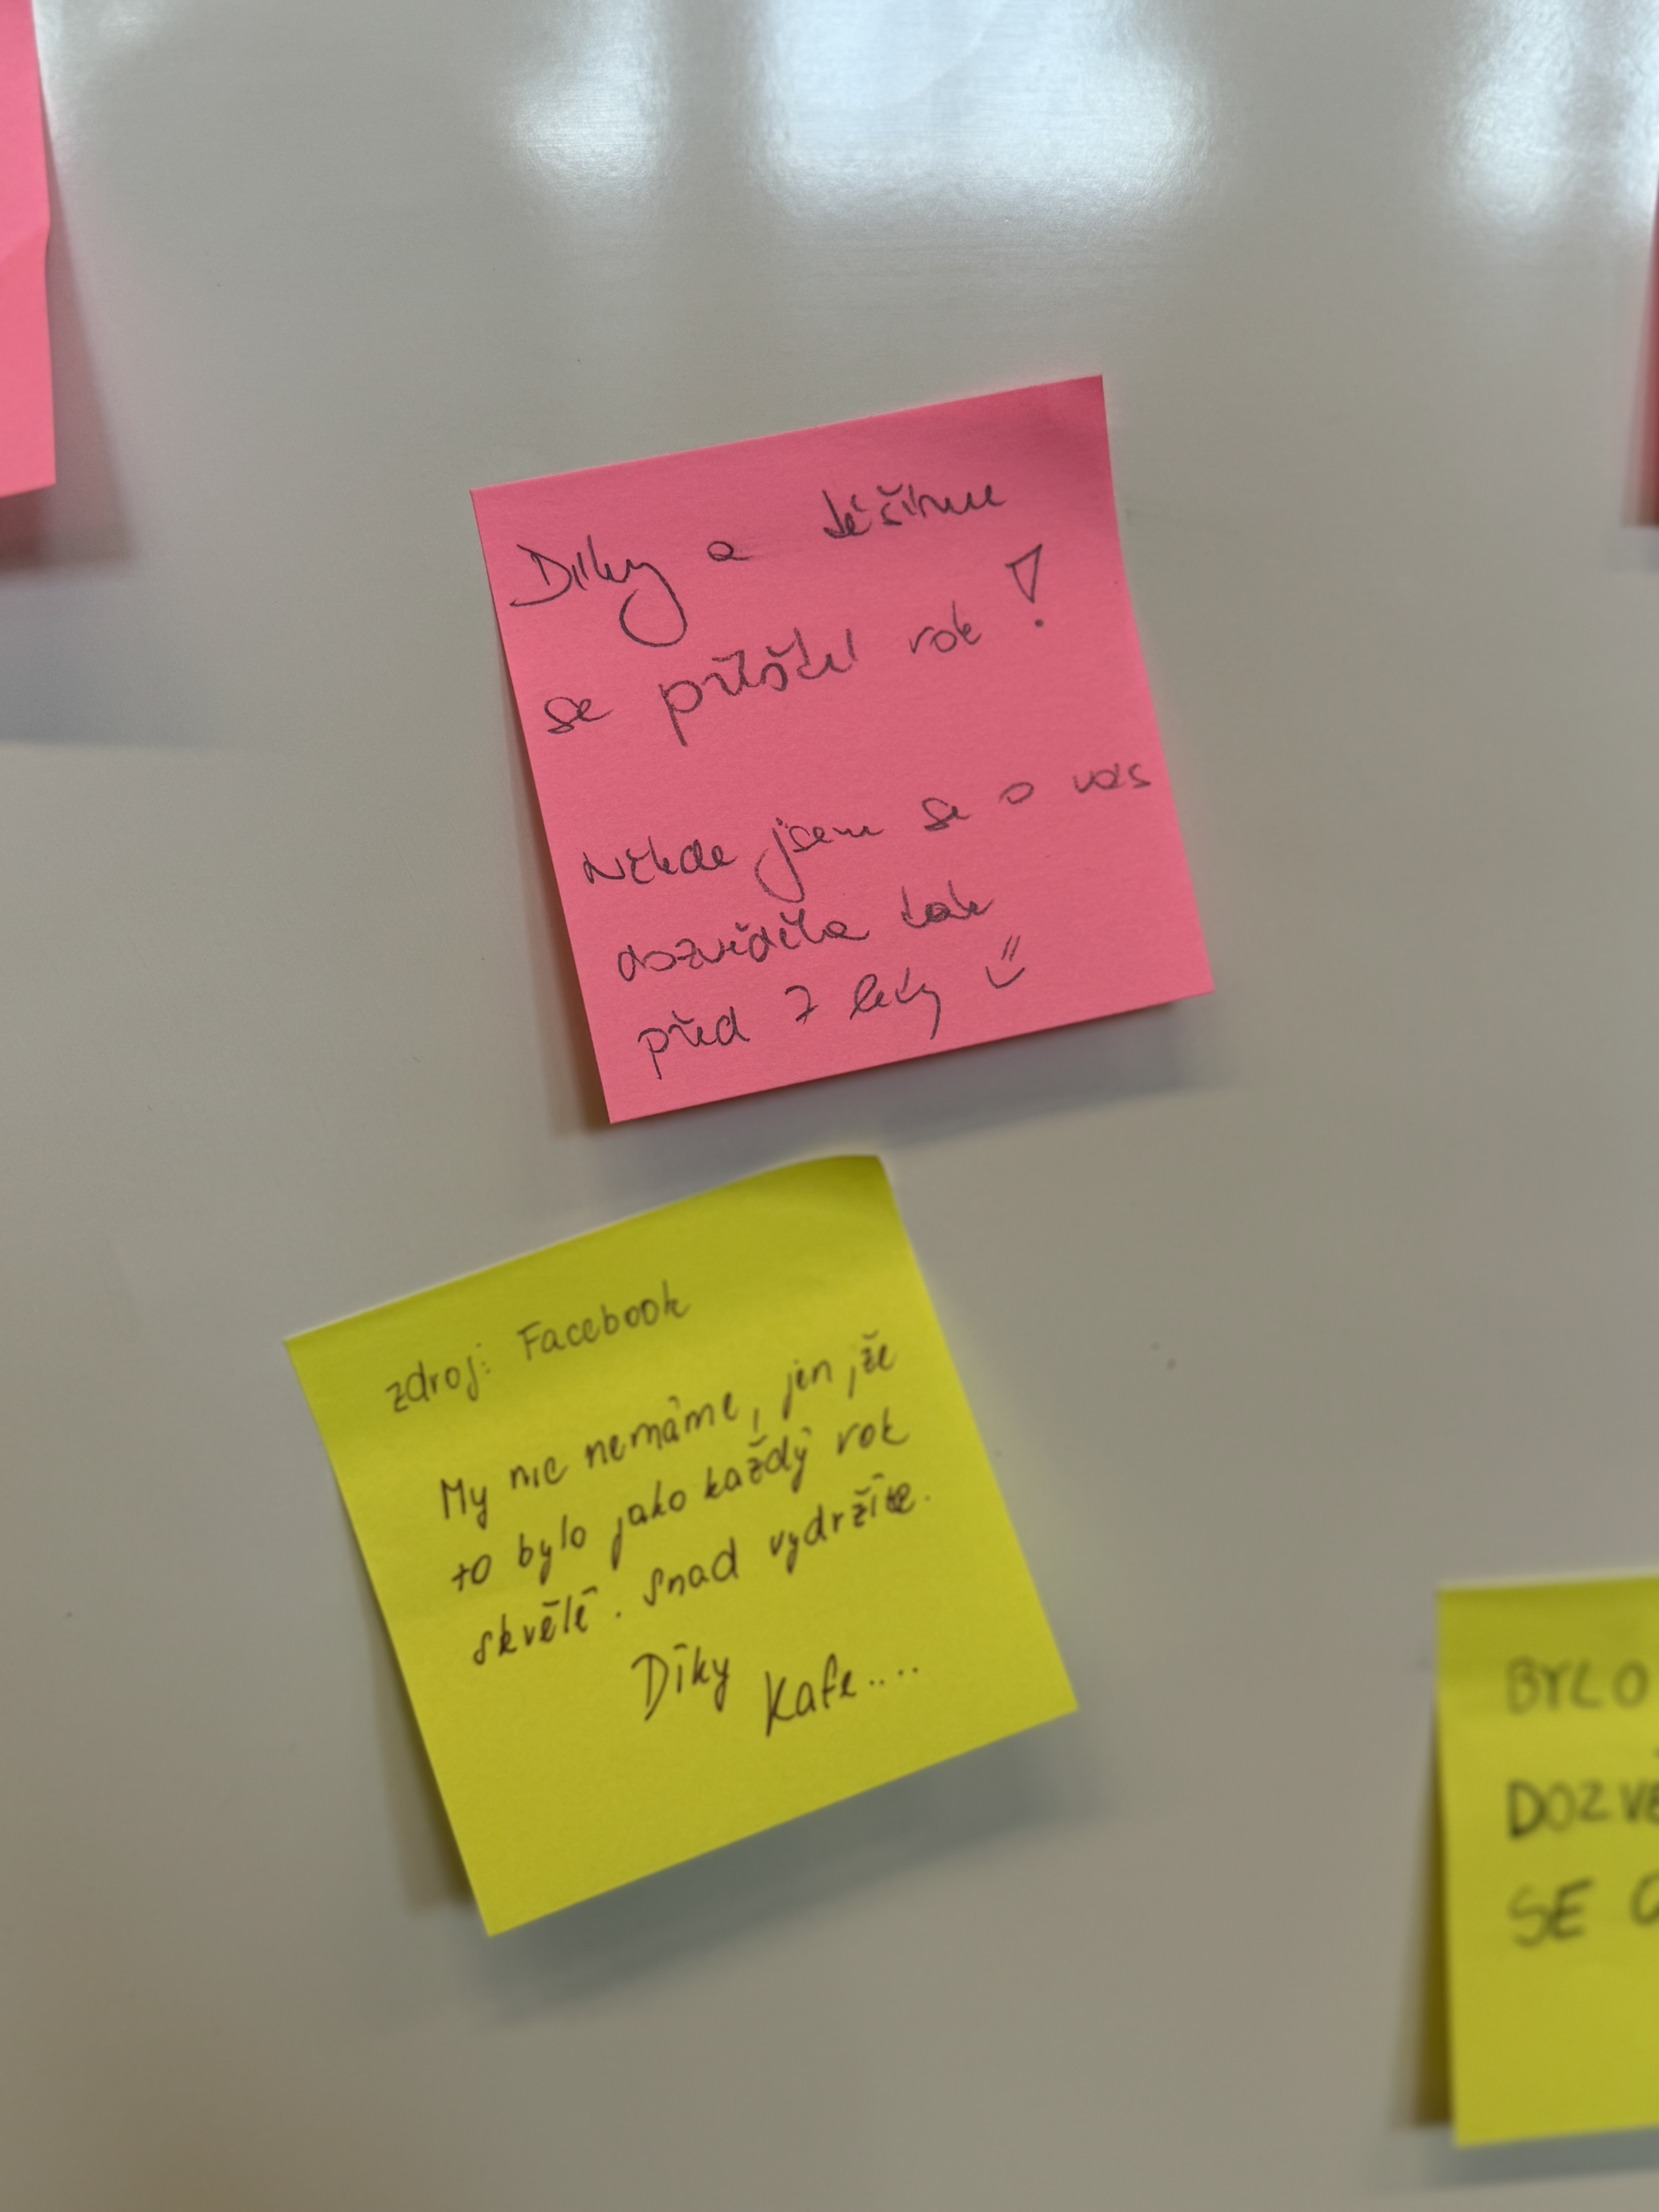 Díky a těšíme
se příští rok!
Někde jsem se o vás
dozvěděla tak
před 7 lety
zdroj: Facebook
My nic nemáme, jen, že
to bylo jako každý rok
skvělé. Snad vydržíte.
Díky
Kafe....
BYLO
DOZVĚ
SE